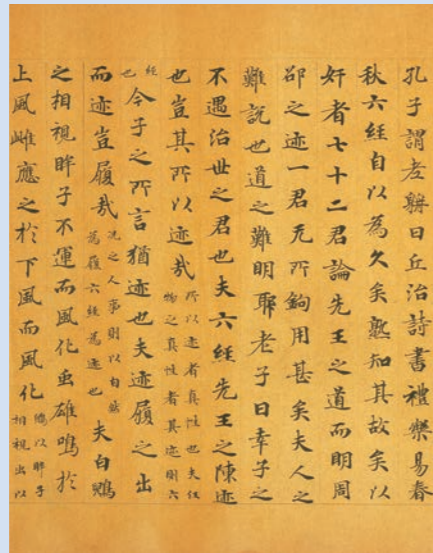 孔子謂老聃曰丘治詩書禮樂易春
秋六經自以為久矣熟知其故矣以
奸者七十二君論先王之道而明周
邵之迹一君无所鉤用甚矣夫人之
難說也道之難明耶老子曰幸子之
不遇治世之君也夫六經先王之陳迹
也豈其所以迹哉所以迹者真性也夫任物之真性者其迹則六
經也今子之所言猶迹也夫迹履之出
而迹豈履哉況之人事則以自然為履六經為迹也夫白鶂
之相視眸子不運而風化虫雄鳴於
上風雌應之於下風而風化鶂以眸子相視虫以